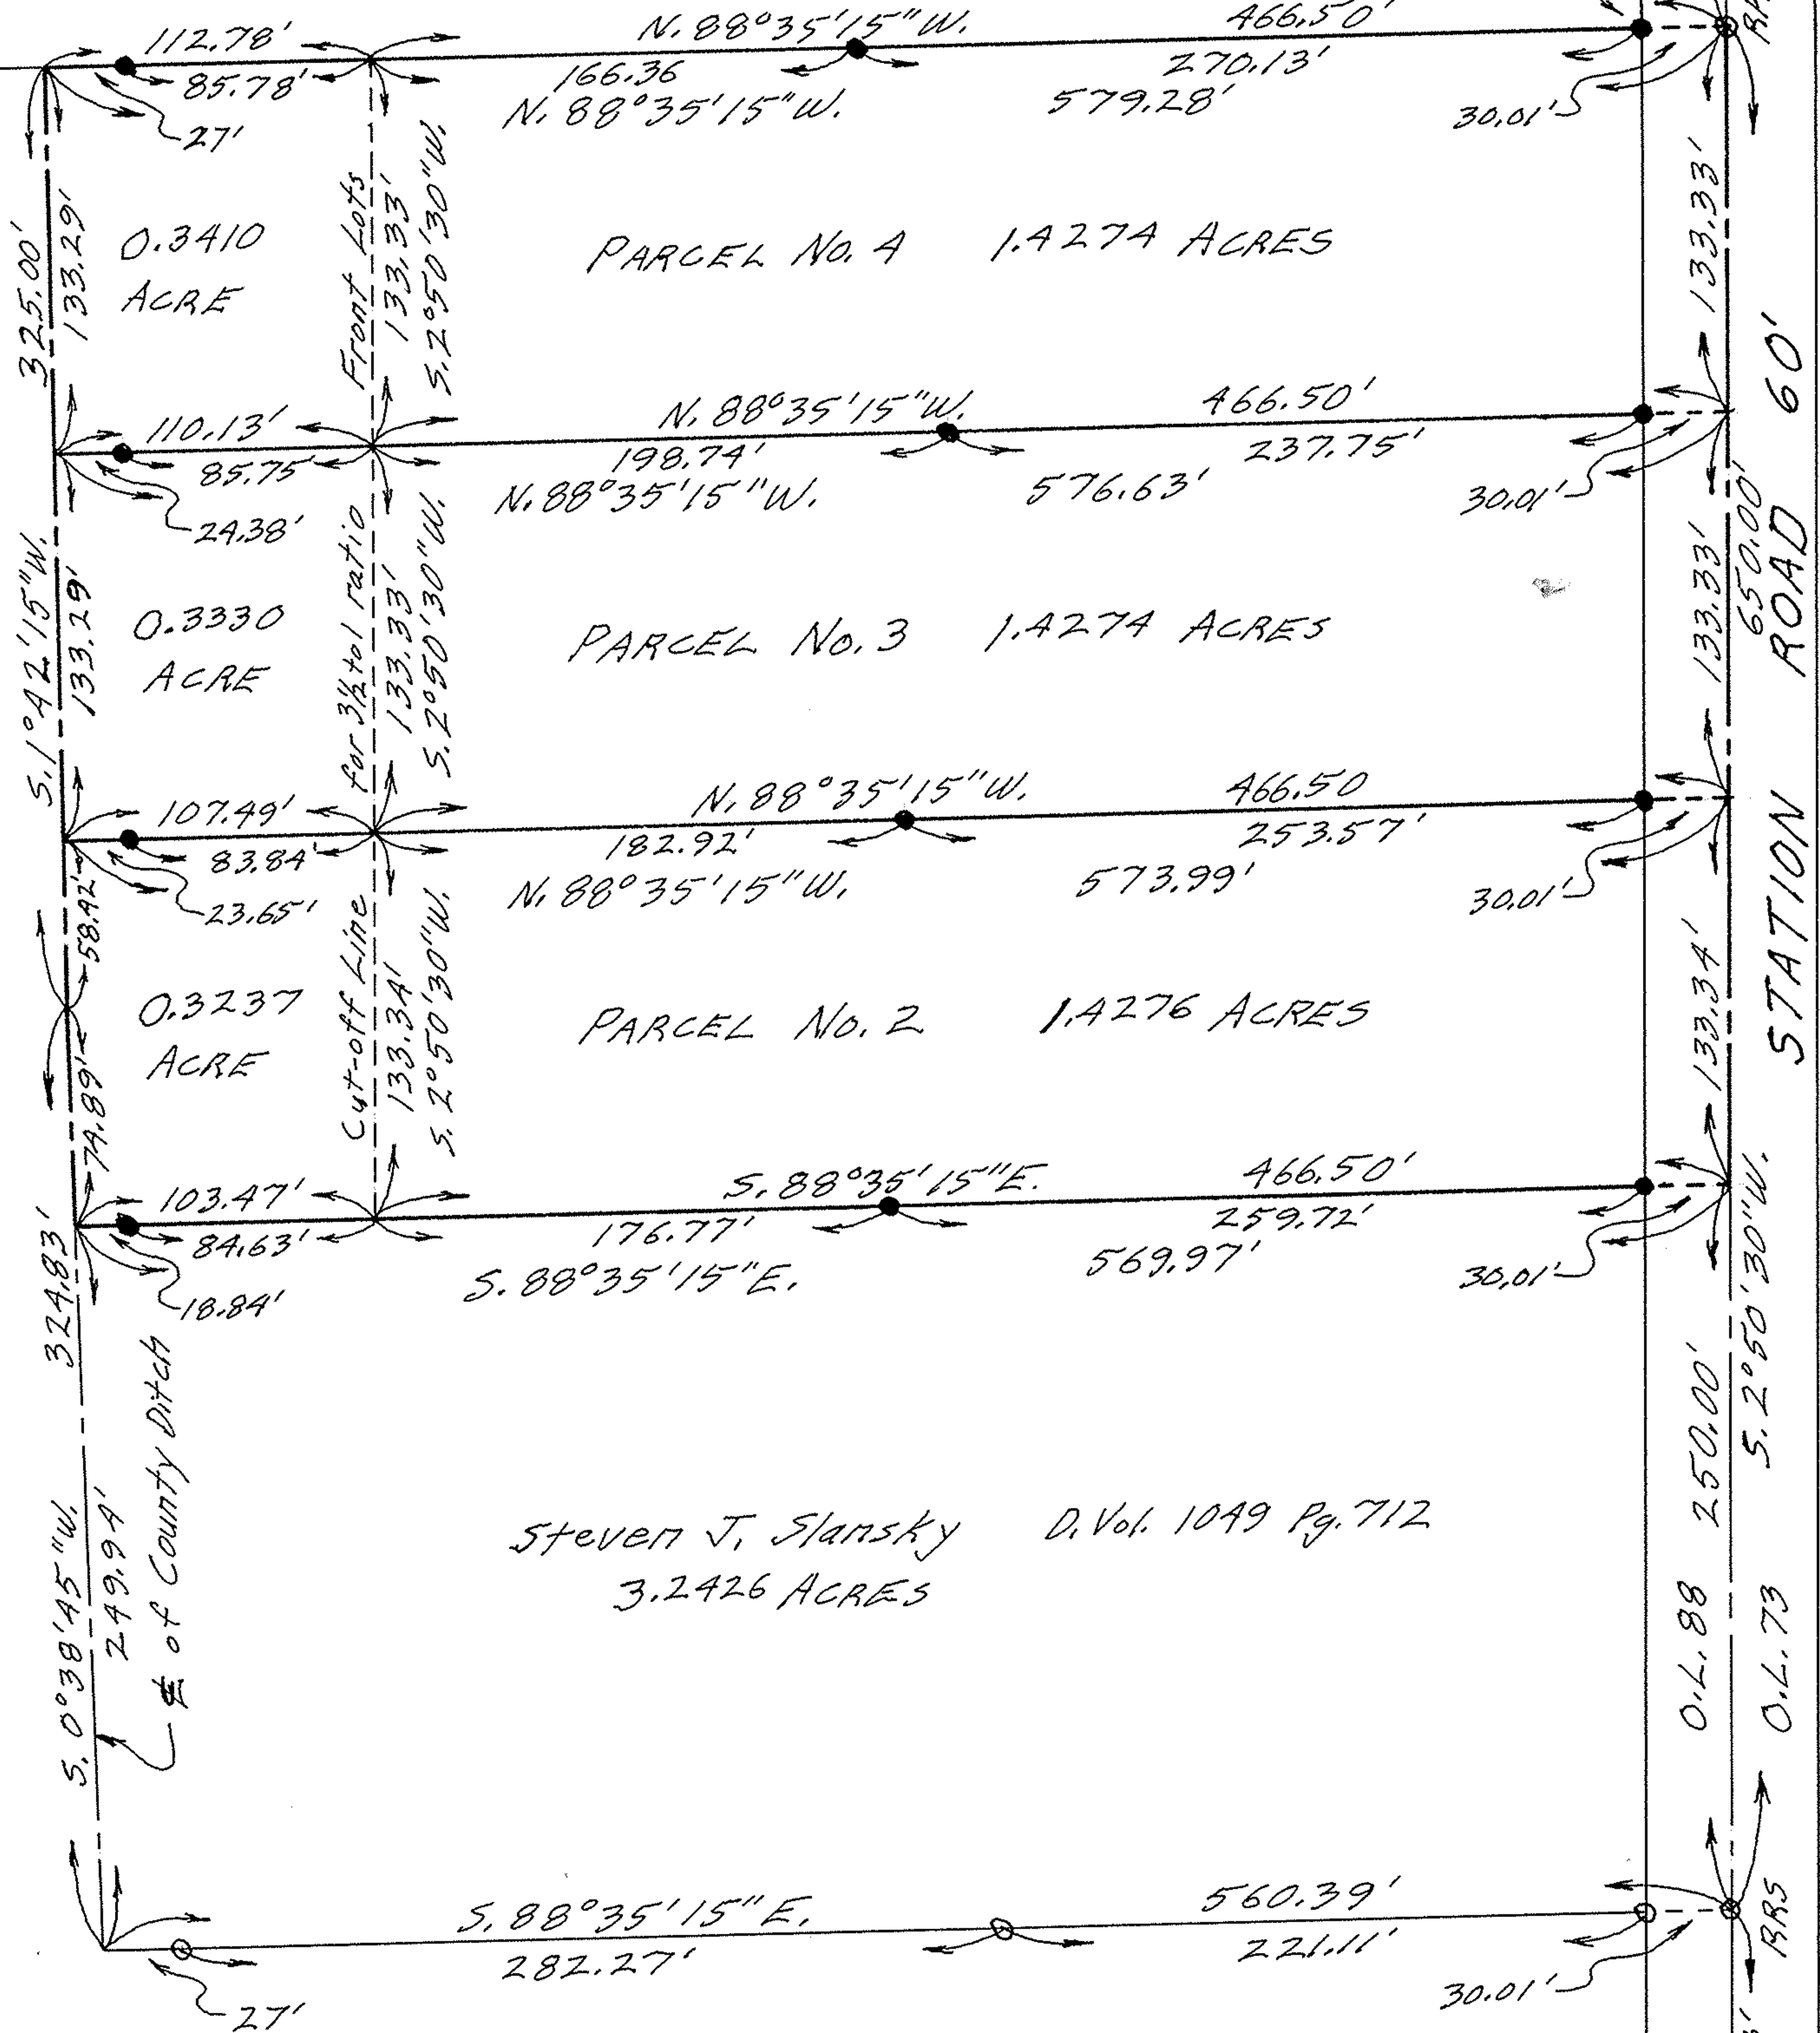 112.78'
N. 88°35'15"W.
466.50'
85.78'
166.36
270.13'
27'
N. 88°35'15"W.
579.28'
30.01'
325.00'
133.29'
0.3410
ACRE
Front Lots
133.33'
S. 2°50'30"W.
PARCEL No. 4
1.4274 ACRES
133.33'
110.13'
N. 88°35'15"W.
466.50'
85.75'
198.74'
237.75'
24.38'
N. 88°35'15"W.
576.63'
30.01'
S. 1°42'15"W.
133.29'
0.3330
ACRE
for 3½ to 1 ratio
133.33'
S. 2°50'30"W.
PARCEL No. 3
1.4274 ACRES
133.33'
650.00'
STATION ROAD 60'
107.49'
N. 88°35'15"W.
466.50
83.84'
182.92'
253.57'
23.65'
N. 88°35'15"W.
573.99'
30.01'
58.42'
74.89'
0.3237
ACRE
Cut-off Line
133.34'
S. 2°50'30"W.
PARCEL No. 2
1.4276 ACRES
133.34'
103.47'
S. 88°35'15"E.
466.50'
84.63'
176.77'
259.72'
18.84'
S. 88°35'15"E.
569.97'
30.01'
324.83'
S. 0°38'45"W.
249.94'
℄ of County Ditch
Steven J. Slansky
D. Vol. 1049 Pg. 712
3.2426 ACRES
250.00'
S. 2°50'30"W.
O.L. 88
O.L. 73
S. 88°35'15"E.
560.39'
282.27'
221.11'
27'
30.01'
RRS